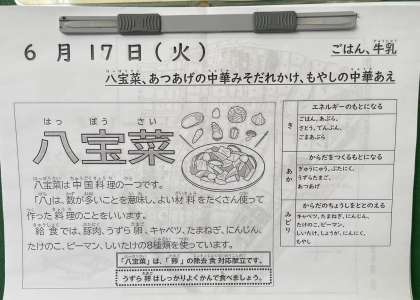 6月17日(火)
ごはん、牛乳
八宝菜、あつあげの中華みそだれかけ、もやしの中華あえ
はっ ぽう さい
八宝菜
八宝菜は中国料理の一つです。
「八」は、数が多いことを意味し、よい材料をたくさん使って
作った料理のことをいいます。
給食では、豚肉、うずら卵、キャベツ、たまねぎ、にんじん、
たけのこ、ピーマン、しいたけの8種類を使っています。
「八宝菜」は、「卵」の除去食対応献立です。
うずら卵はしっかりよくかんで食べましょう。
エネルギーのもとになる
き
ごはん、あぶら、
さとう、でんぷん、
ごまあぶら
からだをつくるもとになる
あか
ぎゅうにゅう、ぶたにく、
うずらたまご、
あつあげ
からだのちょうしをととのえる
みどり
キャベツ、たまねぎ、にんじん、
たけのこ、ピーマン、
しいたけ、しょうが、にんにく、
もやし